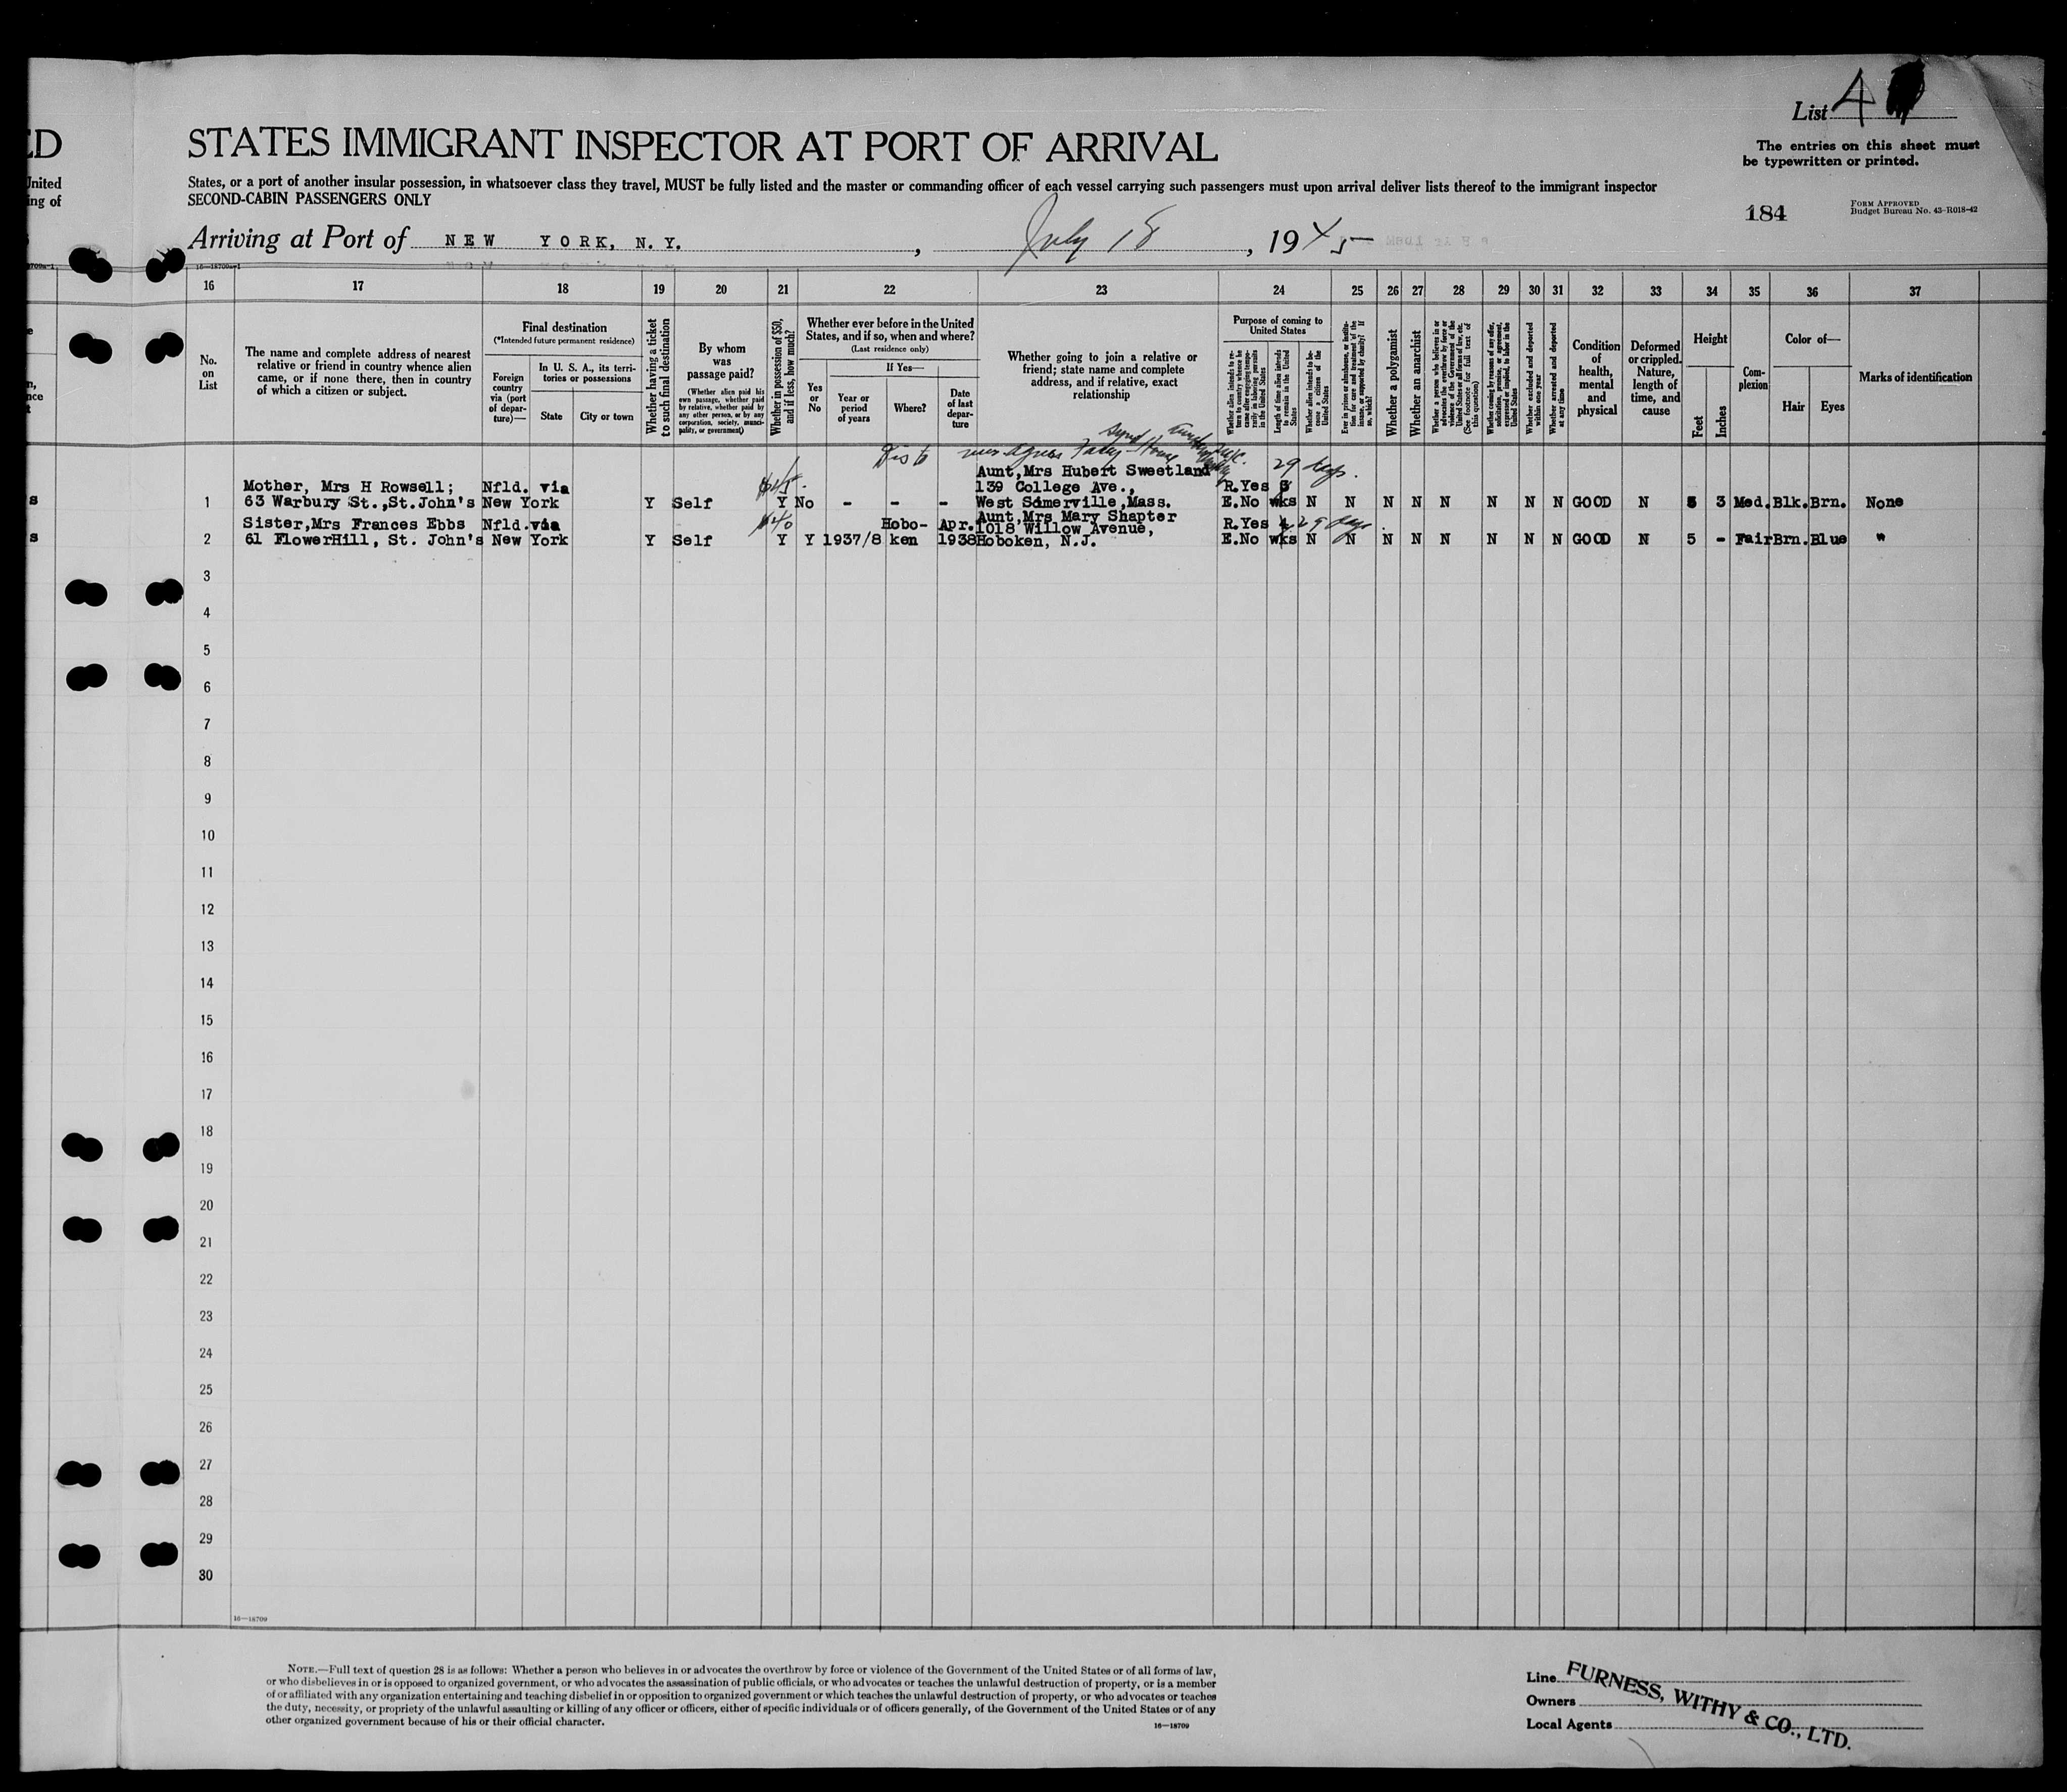 List 4
ED
STATES IMMIGRANT INSPECTOR AT PORT OF ARRIVAL
The entries on this sheet must
be typewritten or printed.
United
ing of
States, or a port of another insular possession, in whatsoever class they travel, MUST be fully listed and the master or commanding officer of each vessel carrying such passengers must upon arrival deliver lists thereof to the immigrant inspector
SECOND-CABIN PASSENGERS ONLY
184
FORM APPROVED
Budget Bureau No. 43-R018-42
Arriving at Port of NEW YORK, N. Y. , July 18 , 1945
16 17 18 19 20 21 22 23 24 25 26 27 28 29 30 31 32 33 34 35 36 37
No. on List
The name and complete address of nearest
relative or friend in country whence alien
came, or if none there, then in country
of which a citizen or subject.
Final destination
(*Intended future permanent residence)
Foreign
country
via (port
of depar-
ture)—
In U. S. A., its terri-
tories or possessions
State
City or town
Whether having a ticket
to such final destination
By whom
was
passage paid?
(Whether alien paid his
own passage, whether paid
by relative, whether paid by
any other person, or by any
corporation, society, munici-
pality, or government)
Whether in possession of $50,
and if less, how much?
Whether ever before in the United
States, and if so, when and where?
(Last residence only)
Yes
or
No
If Yes—
Year or
period
of years
Where?
Date
of last
depar-
ture
Whether going to join a relative or
friend; state name and complete
address, and if relative, exact
relationship
Purpose of coming to
United States
Whether alien intends to re-
turn to country whence he
came after engaging tempo-
rarily in laboring pursuits
in the United States
Length of time alien intends
to remain in the United
States
Whether alien intends to be-
come a citizen of the
United States
Ever in prison or almshouse, or institu-
tion for care and treatment of the
insane, or supported by charity? If
so, which?
Whether a polygamist
Whether an anarchist
Whether a person who believes in or
advocates the overthrow by force or
violence of the Government of the
United States or all forms of law, etc.
(See footnote for full text of
this question)
Whether coming by reasons of any offer,
solicitation, promise, or agreement,
expressed or implied, to labor in the
United States
Whether excluded and deported
within one year
Whether arrested and deported
at any time
Condition
of
health,
mental
and
physical
Deformed
or crippled.
Nature,
length of
time, and
cause
Height
Feet
Inches
Com-
plexion
Color of—
Hair
Eyes
Marks of identification
Aunt,Mrs Hubert Sweetland 29 days.
Mother, Mrs H Rowsell; Nfld. via $45. 139 College Ave., R.Yes
1 63 Warbury St.,St.John's New York Y Self Y No - - - West Somerville,Mass. E.No wks N N N N N N N N GOOD N 5 3 Med. Blk. Brn. None
Aunt,Mrs Mary Shapter
Sister,Mrs Frances Ebbs Nfld.via $40 Hobo- Apr. 1018 Willow Avenue, R.Yes 4 29 days.
2 61 FlowerHill, St. John's New York Y Self Y Y 1937/8 ken 1938 Hoboken, N.J. E.No wks N N N N N N N N GOOD N 5 - Fair Brn. Blue "
3
4
5
6
7
8
9
10
11
12
13
14
15
16
17
18
19
20
21
22
23
24
25
26
27
28
29
30
16—18709
NOTE.—Full text of question 28 is as follows: Whether a person who believes in or advocates the overthrow by force or violence of the Government of the United States or of all forms of law,
or who disbelieves in or is opposed to organized government, or who advocates the assassination of public officials, or who advocates or teaches the unlawful destruction of property, or is a member
of or affiliated with any organization entertaining and teaching disbelief in or opposition to organized government or which teaches the unlawful destruction of property, or who advocates or teaches
the duty, necessity, or propriety of the unlawful assaulting or killing of any officer or officers, either of specific individuals or of officers generally, of the Government of the United States or of any
other organized government because of his or their official character.
16—18709
Line
Owners
Local Agents
FURNESS, WITHY & CO., LTD.